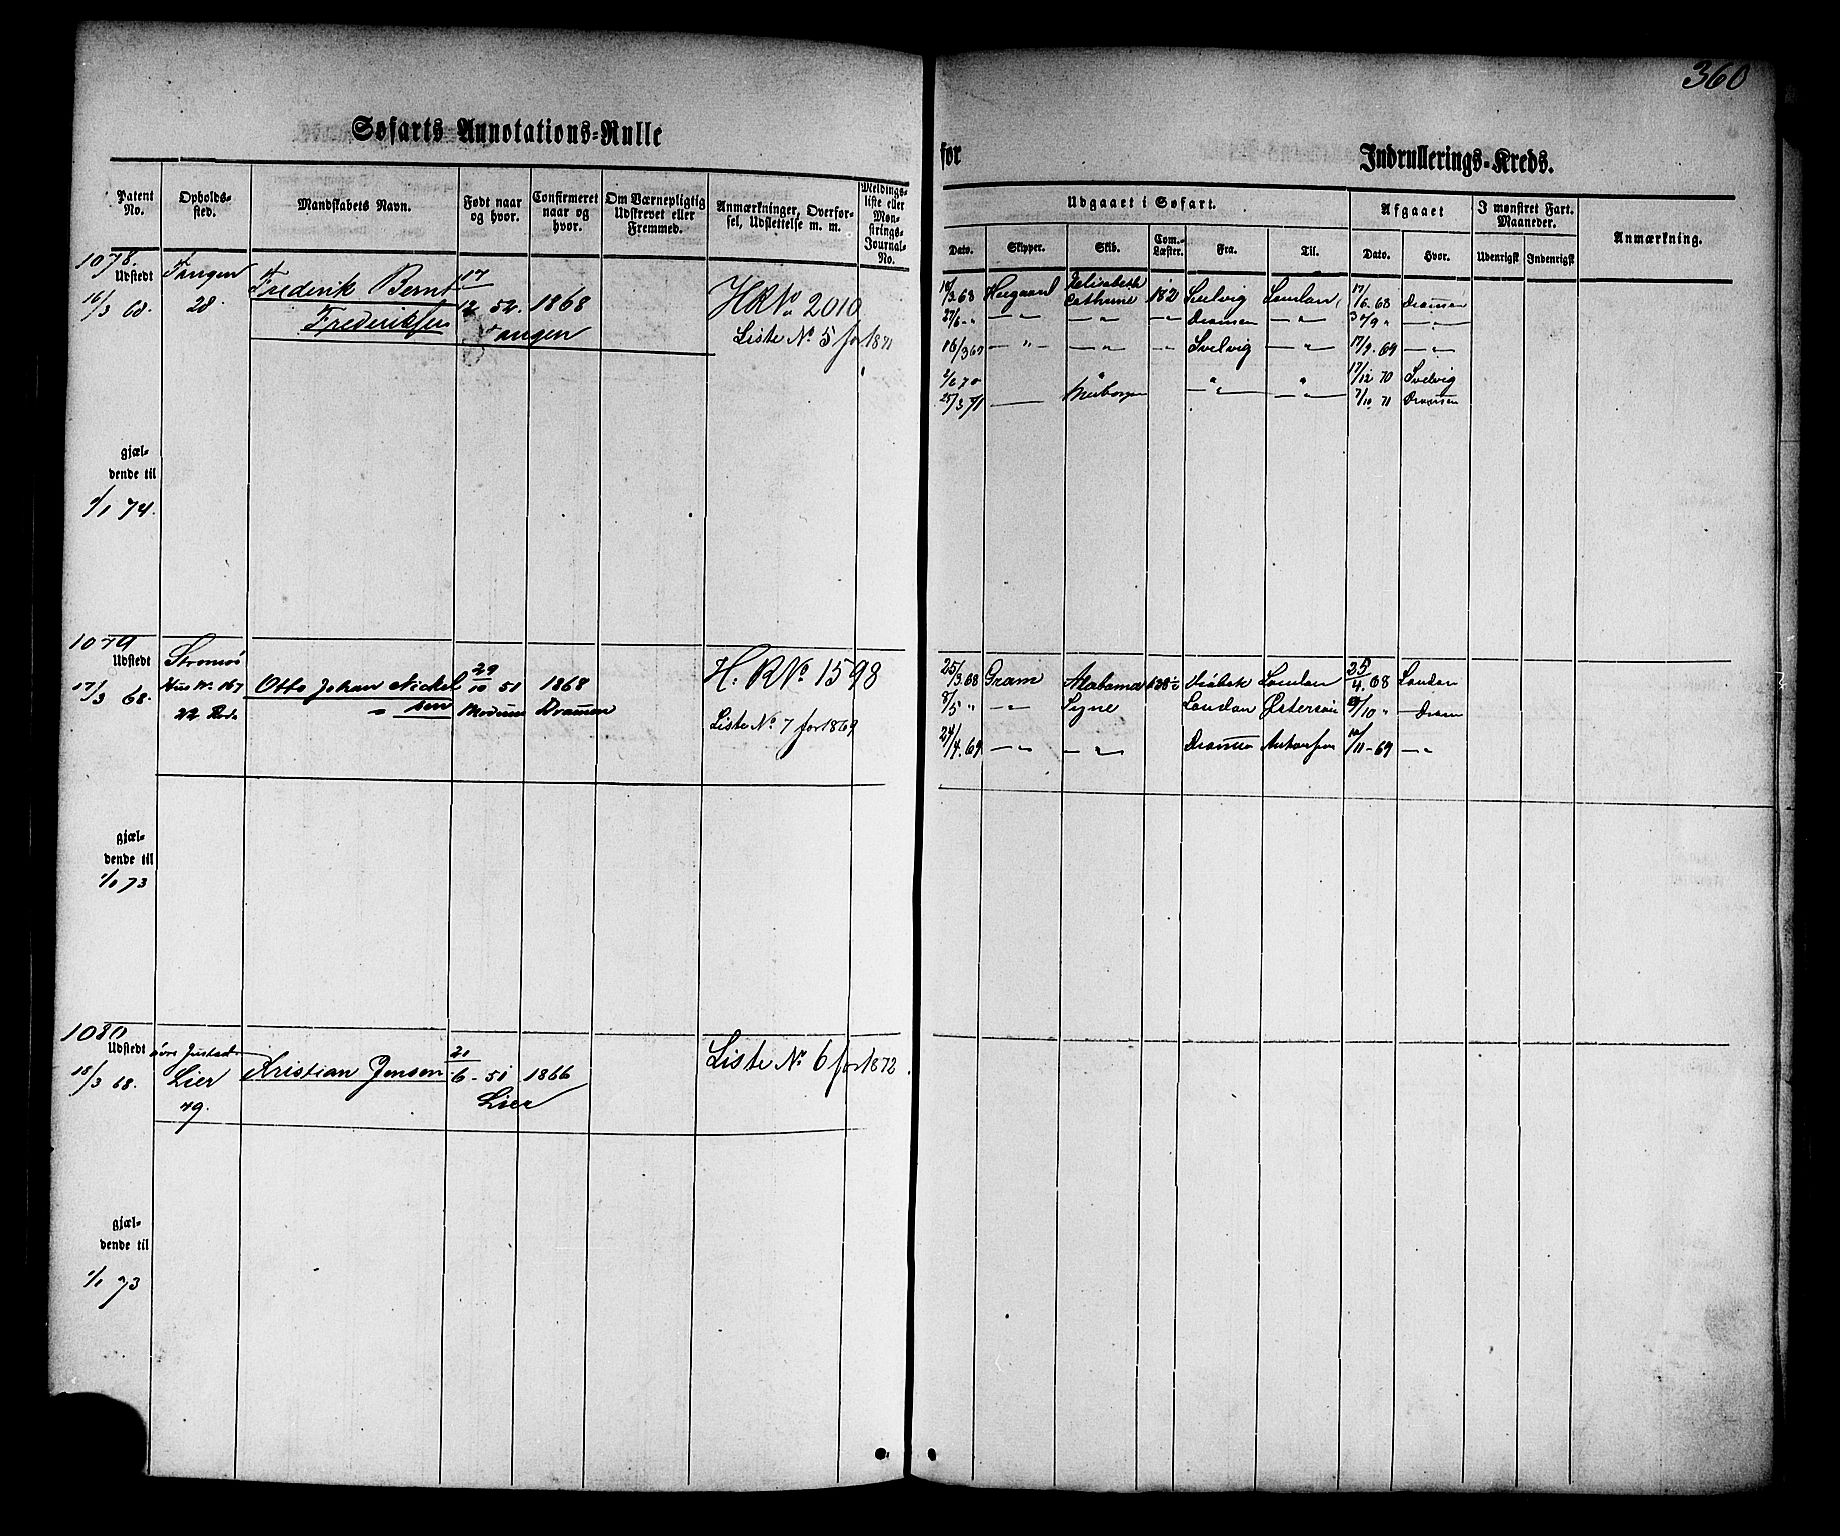 360
Søfarts Annotations-Rulle
for
Indrullerings-Kreds.
Patent No.
Opholdssted.
Mandskabets Navn.
Født naar og hvor.
Confirmeret naar og hvor.
Om Værnepligtig Udskrevet eller Fremmed.
Anmærkninger, Overforsel, Udslettelse m. m.
Meldingsliste eller Mønstrings-Journal-No.
Udgaaet i Søfart.
Afgaaet
I mønstret Fart. Maaneder.
Anmærkning.
Dato.
Skipper.
Skib.
Com.-Læster.
Fra.
Til.
Dato.
Hvor.
Udenrigsk
Indenrigsk
1078.
Udstedt
16/3 68.
Tangen
28.
Frederik Bernt
Frederiksen
17
12 52.
1868
Tangen
HR No 2010
Liste No 5 for 1871
Elisabeth
Cathrine
182
Svelvig
17/6 68 Dramen
27/6 "
Dramen
Svelvig
17/9 69
17/12 70 Svelvig
25/3 71
7/10 71 Dramen
gjældende til
1/1 74.
1079
Udstedt
17/3 68.
Strømsø
Hus No 167
22 Rode
Otto Johan Nickelsen
29
10 51
Modum
1868
Dramen
H. R No 1598
Liste No 7 for 1869
25/3 68 Gram Alabama London 25/4 68 London
8/5 " Signe London Østersøn
Dram
27/4 69
Dramen
11 69
gjældende til
1/1 73
1080
Udstedt
18/3 68.
Lier
79.
Kristian Jensen
21
6 - 51
1866
Lier
Liste No 6 for 1872.
gjældende til
1/1 73